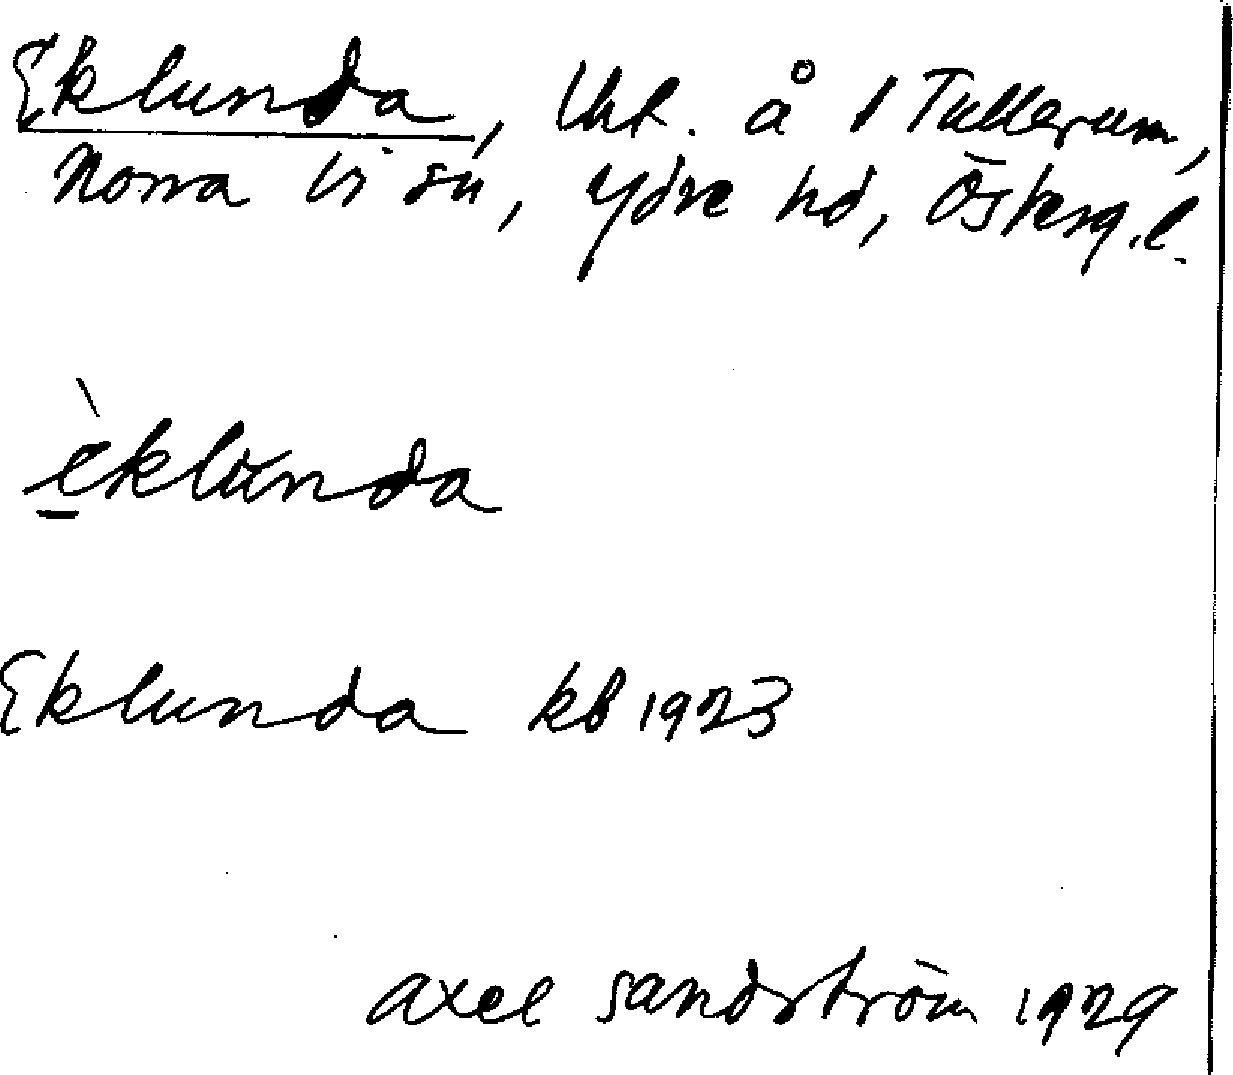 Eklunda, lht. å 1 Tullerum,
Norra Vi sn, Ydre hd, Österg.l.
èklunda
Eklunda kb 1923
Axel Sandström 1929